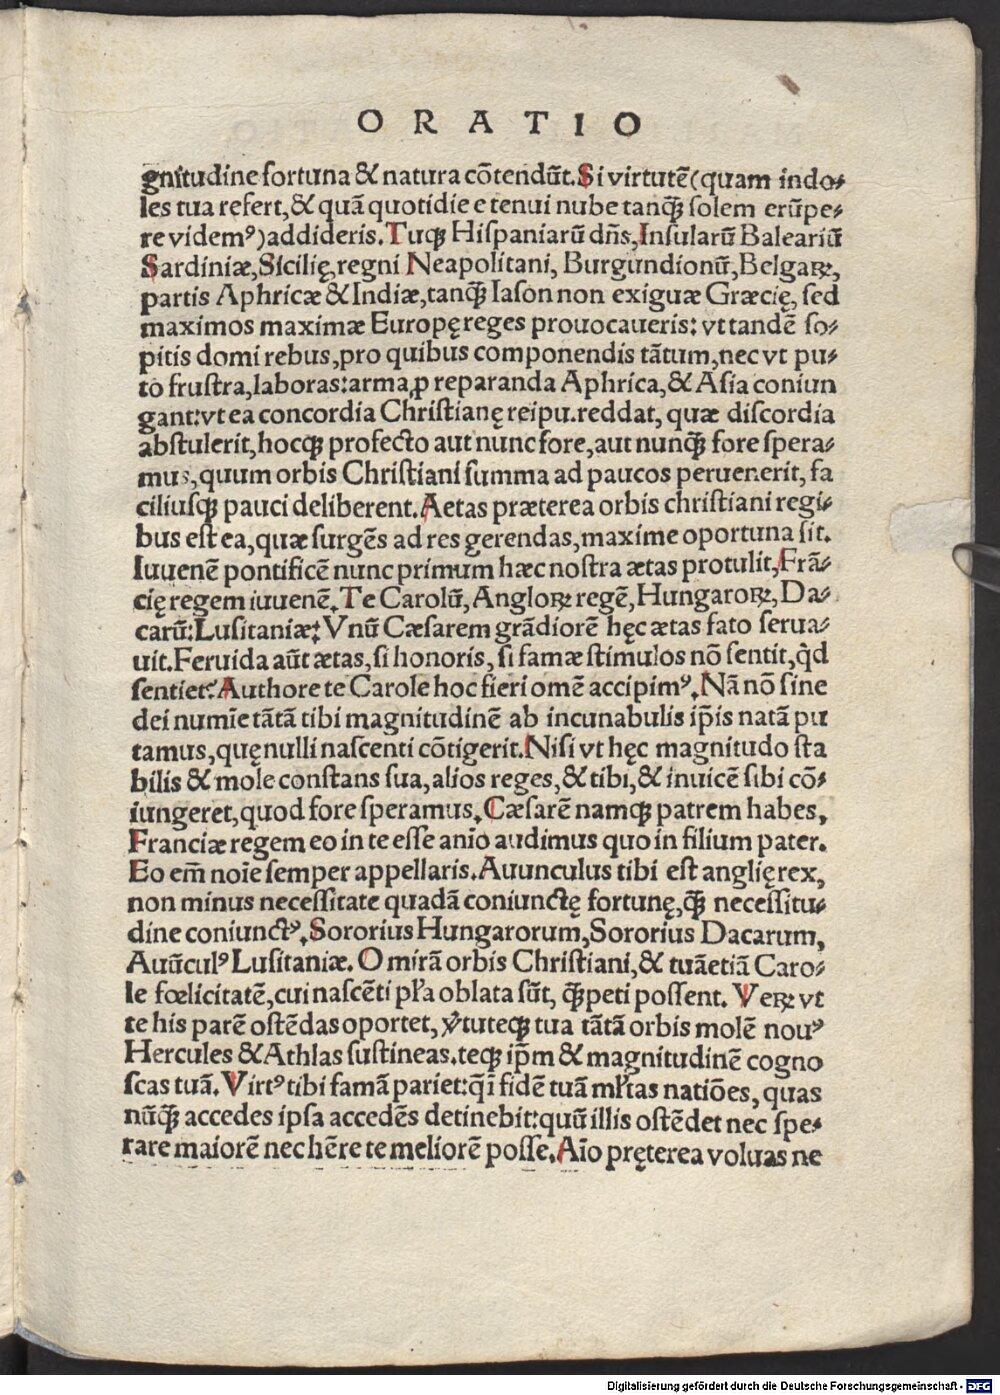 ORATIO
gnitudine fortuna & natura cõtendũt. Si virtutẽ (quam indo-
les tua refert, & quã quotidie e tenui nube tanꝗ̃ solem erũpe-
re videmꝰ) addideris. Tuqꝫ Hispaniarũ dñs, Insularũ Baleariũ
Sardiniæ, Sicilię, regni Neapolitani, Burgundionũ, Belgaꝝ,
partis Aphricæ & Indiæ, tanꝗ̃ Iason non exiguæ Græcię, sed
maximos maximæ Europę reges prouocaueris: vt tandẽ so-
pitis domi rebus, pro quibus componendis tãtum, nec vt pu-
to frustra, laboras: arma ꝓ reparanda Aphrica, & Asia coniun
gant: vt ea concordia Christianę reipu. reddat, quæ discordia
abstulerit, hocqꝫ profecto aut nunc fore, aut nunꝗ̃ fore spera-
mus, quum orbis Christiani summa ad paucos peruenerit, fa
ciliusqꝫ pauci deliberent. Aetas præterea orbis christiani regi-
bus est ea, quæ surgẽs ad res gerendas, maxime oportuna sit.
Iuuenẽ pontificẽ nunc primum hæc nostra ætas protulit, Frã-
cię regem iuuenẽ. Te Carolũ, Angloꝝ regẽ, Hungaroꝝ, Da-
carũ: Lusitaniæ: Vnũ Cæsarem grãdiorẽ hęc ætas fato serua-
uit. Feruida aũt ætas, si honoris, si famæ stimulos nõ sentit, qͥd
sentiet? Authore te Carole hoc fieri omẽ accipimꝰ. Nã nõ sine
dei numĩe tãtã tibi magnitudinẽ ab incunabulis ip̃is natã pu
tamus, quę nulli nascenti cõtigerit. Nisi vt hęc magnitudo sta
bilis & mole constans sua, alios reges, & tibi, & inuicẽ sibi cõ-
iungeret, quod fore speramus. Cæsarẽ namqꝫ patrem habes,
Franciæ regem eo in te esse anĩo audimus quo in filium pater.
Eo em̃ noĩe semper appellaris. Auunculus tibi est anglię rex,
non minus necessitate quadã coniunctę fortunę, ꝗ̃ necessitu-
dine coniunctꝰ. Sororius Hungarorum, Sororius Dacarum,
Auũculꝰ Lusitaniæ. O mirã orbis Christiani, & tuã etiã Caro-
le fœlicitatẽ, cui nascẽti pl̃a oblata sũt, ꝗ̃ peti possent. Veꝝ vt
te his parẽ ostẽdas oportet, v̓tuteqꝫ tua tãtã orbis molẽ nouꝰ
Hercules & Athlas sustineas. teqꝫ ip̃m & magnitudinẽ cogno
scas tuã. Virtꝰ tibi famã pariet: q̃ fidẽ tuã ml̃tas natiões, quas
nũꝗ̃ accedes ipsa accedẽs detinebit: quũ illis ostẽdet nec spe-
rare maiorẽ nec hẽre te meliorẽ posse. Aĩo pręterea voluas ne
Digitalisierung gefördert durch die Deutsche Forschungsgemeinschaft - DFG